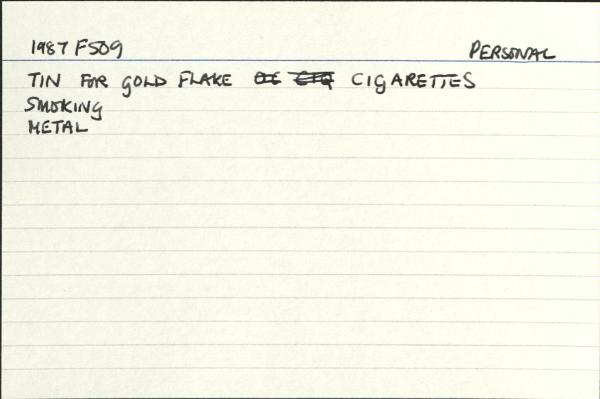 1987 F509 PERSONAL
TIN FOR GOLD FLAKE CIGARETTES
SMOKING
METAL